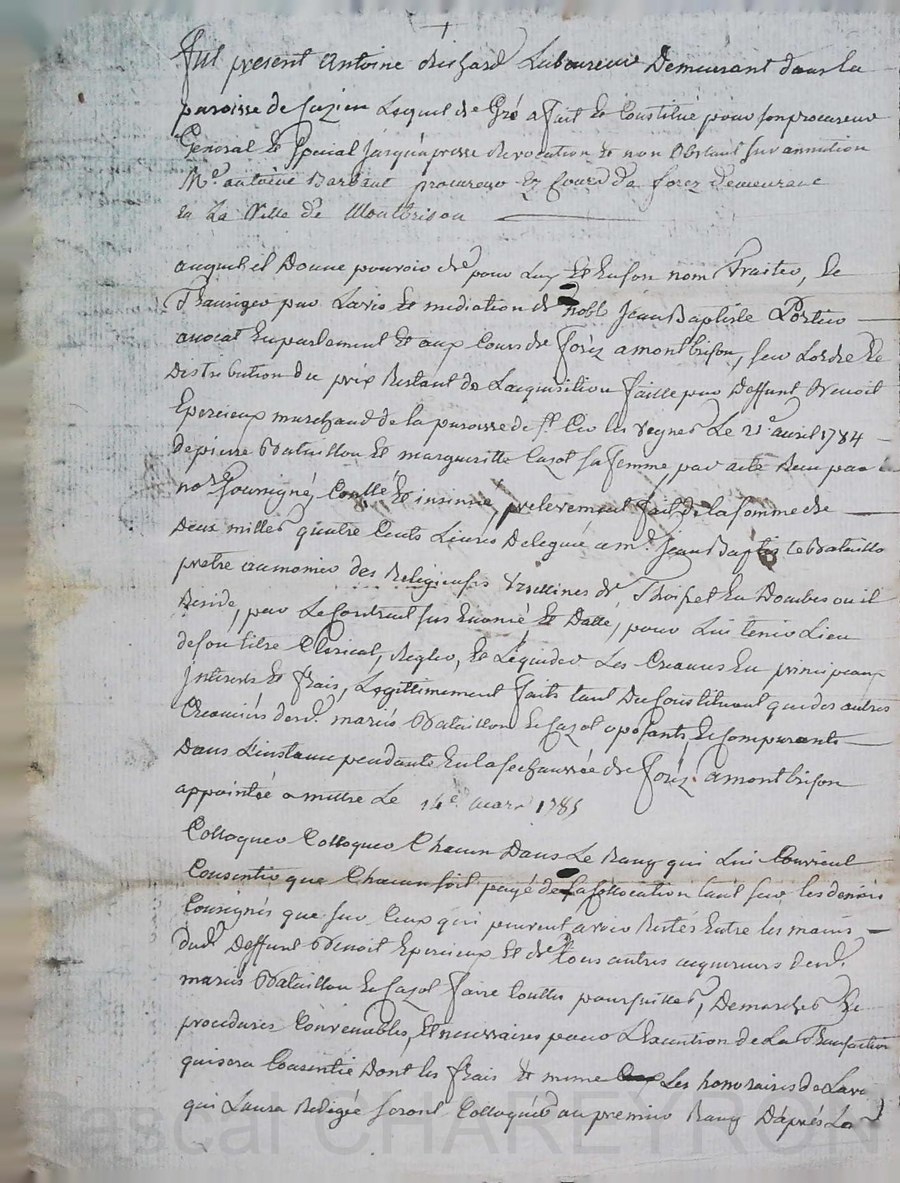 Fut present Antoine Richard Laboureur Demeurant dans la
paroisse de Luzieu Lequel de Gré a fait et Constitué pour son procureur
General et special jusqua presse Revocation et non obstant surannation
Me antoine Barbat procureur ez cours de forez demeurant
en La Ville de Montbrison
auquel il Donne pouvoir de pour Luy et En son nom Traiter, et
Transiger par Lavis et mediation de noble Jean Baptiste Portier
avocat En parlement et aux Cours de forez a montbrison, sur Lordre et
Distribution du prix Restant de Lacquisition faitte par Deffunt Benoit
Epercieux marchand de la paroisse de st Cir les vignes Le 21e avril 1784
de pierre Bataillon et margueritte Cazot sa femme, par acte Recu par
nore Controllé et insinué, prelevement fait de la somme de
Deux milles quatre Cents Livres Deleguée a mre Jean Baptiste Bataillon
pretre aumonier des Religieuses Urselines de Thoissei En Dombes ou il
Reside, par Le Contrat sus Enoncé et Datté, pour Lui tenir Lieu
de son titre Clerical, Regler, et Liquider Les Creances En principaux
Interets et frais, Legittimement faits tant Du Constituant que des autres
Creanciers desd. mariés Bataillon et Cazot oposants, et Comparants
Dans Linstance pendante En la senechaussée de forez a montbrison
appointée a mettre Le 14e mars 1785
Colloquer Colloquer Chacun Dans Le Rang qui Lui Convient
Consentir que Chacun soit payé de sa Collocation tant sur les deniers
Consignés que sur Ceux qui peuvent avoir Restés Entre les mains
dud. Deffunt Benoit Epercieux et de tous autres acquereurs desd.
mariés Bataillon et Cazot faire touttes poursuittes, Demarches et
procedures Convenables, et necessaires pour L'Execution de La Transaction
qui sera Consentie Dont les frais et meme Les honoraires de Lavo
qui Laura Redigée seront Colloqués au premier Rang D'après La
Pascal CHAREYRON